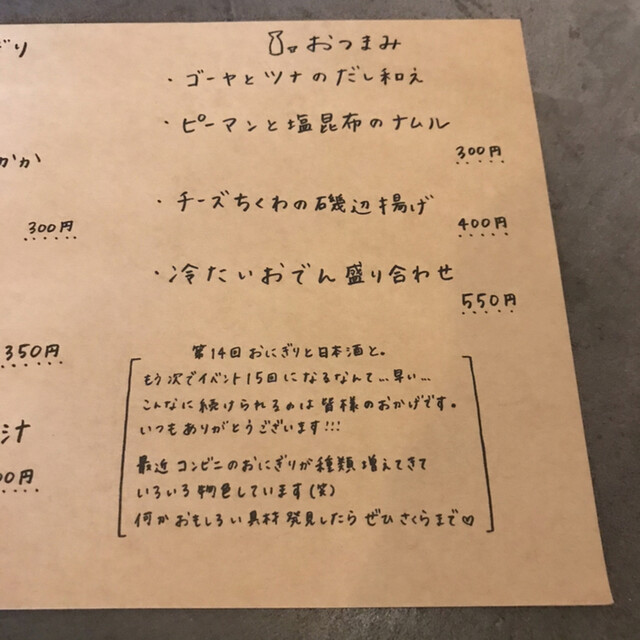 ぎり
かか
300円
350円
汁
00円
おつまみ
・ゴーヤとツナのだし和え
・ピーマンと塩昆布のナムル
300円
・チーズちくわの磯辺揚げ
400円
・冷たいおでん盛り合わせ
550円
第14回 おにぎりと日本酒と。
もう次でイベント15回になるなんて…早い…
こんなに続けられるのは皆様のおかげです。
いつもありがとうございます!!!
最近コンビニのおにぎりが種類増えてきて
いろいろ物色しています(笑)
何かおもしろい具材発見したら ぜひ さくらまで♡